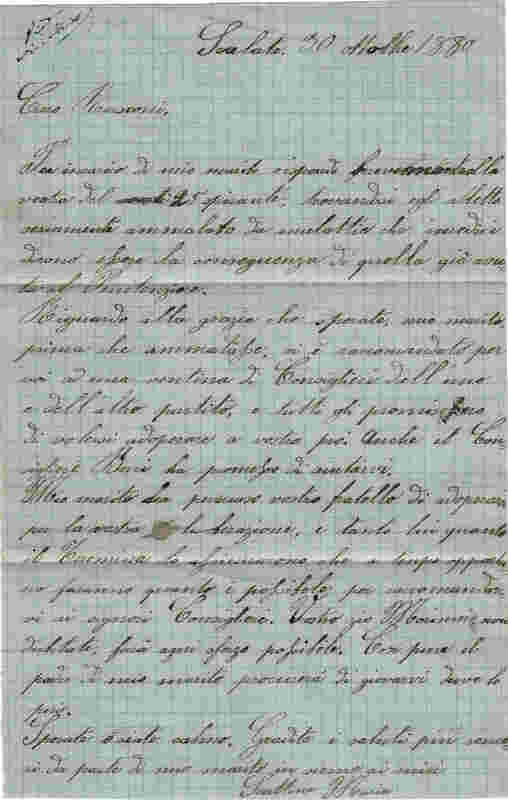 30 Ottobre 1880
Caro
Per incarico di mio marito rispondo brevemente alla
vostra del 25 spirante, trovandosi egli
seriamente ammalato da malattia che i medici
dicono essere la conseguenza di quella già avu-
ta al Penitenziario.
Riguardo alla grazia che sperate, mio marito,
prima che ammalasse, si è raccomandato per
voi ad una ventina di Consiglieri dell'uno
e dell'altro partito, e tutti gli promisero
di volersi adoperare a vostro pro. Anche il Con-
sigliere ha promesso di aiutarvi.
Mio marito ha vostro fratello di adoperarsi
per la vostra liberazione, e tanto lui quanto
il lo assicurarono che a tempo opportu-
no faranno quanto è possibile per raccomandar-
vi ai signori Consiglieri. Vostro zio non
dubitate, farà ogni sforzo possibile. Con pure il
padre di mio marito procurerà di giovarvi dove lo
può.
Sperate e state calmo. Gradite i saluti più
da parte di mio marito
Maria